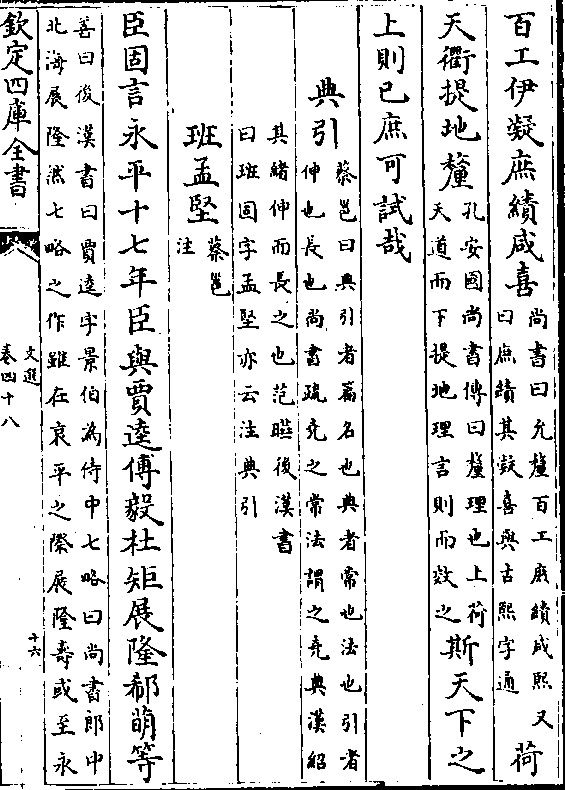 百工伊凝庶績咸喜尚書曰允釐百工庶績咸熙又曰庶績其凝喜與古熙字通荷
天衢提地釐孔安國尚書傳曰釐理也上荷天道而下提地理言則而效之斯天下之
上則已庶可試哉
典引蔡邕曰典引者篇名也典者常也法也引者伸也長也尚書疏堯之常法謂之堯典漢紹
其緒伸而長之也范曄後漢書曰班固字孟堅亦云注典引
班孟堅蔡邕注
臣固言永平十七年臣與賈逵傅毅杜矩展隆郗萌等
善曰後漢書曰賈逵字景伯為侍中七略曰尚書郎中北海展隆然七略之作雖在哀平之際展隆壽或至永
欽定四庫全書
文選
卷四十八
十六